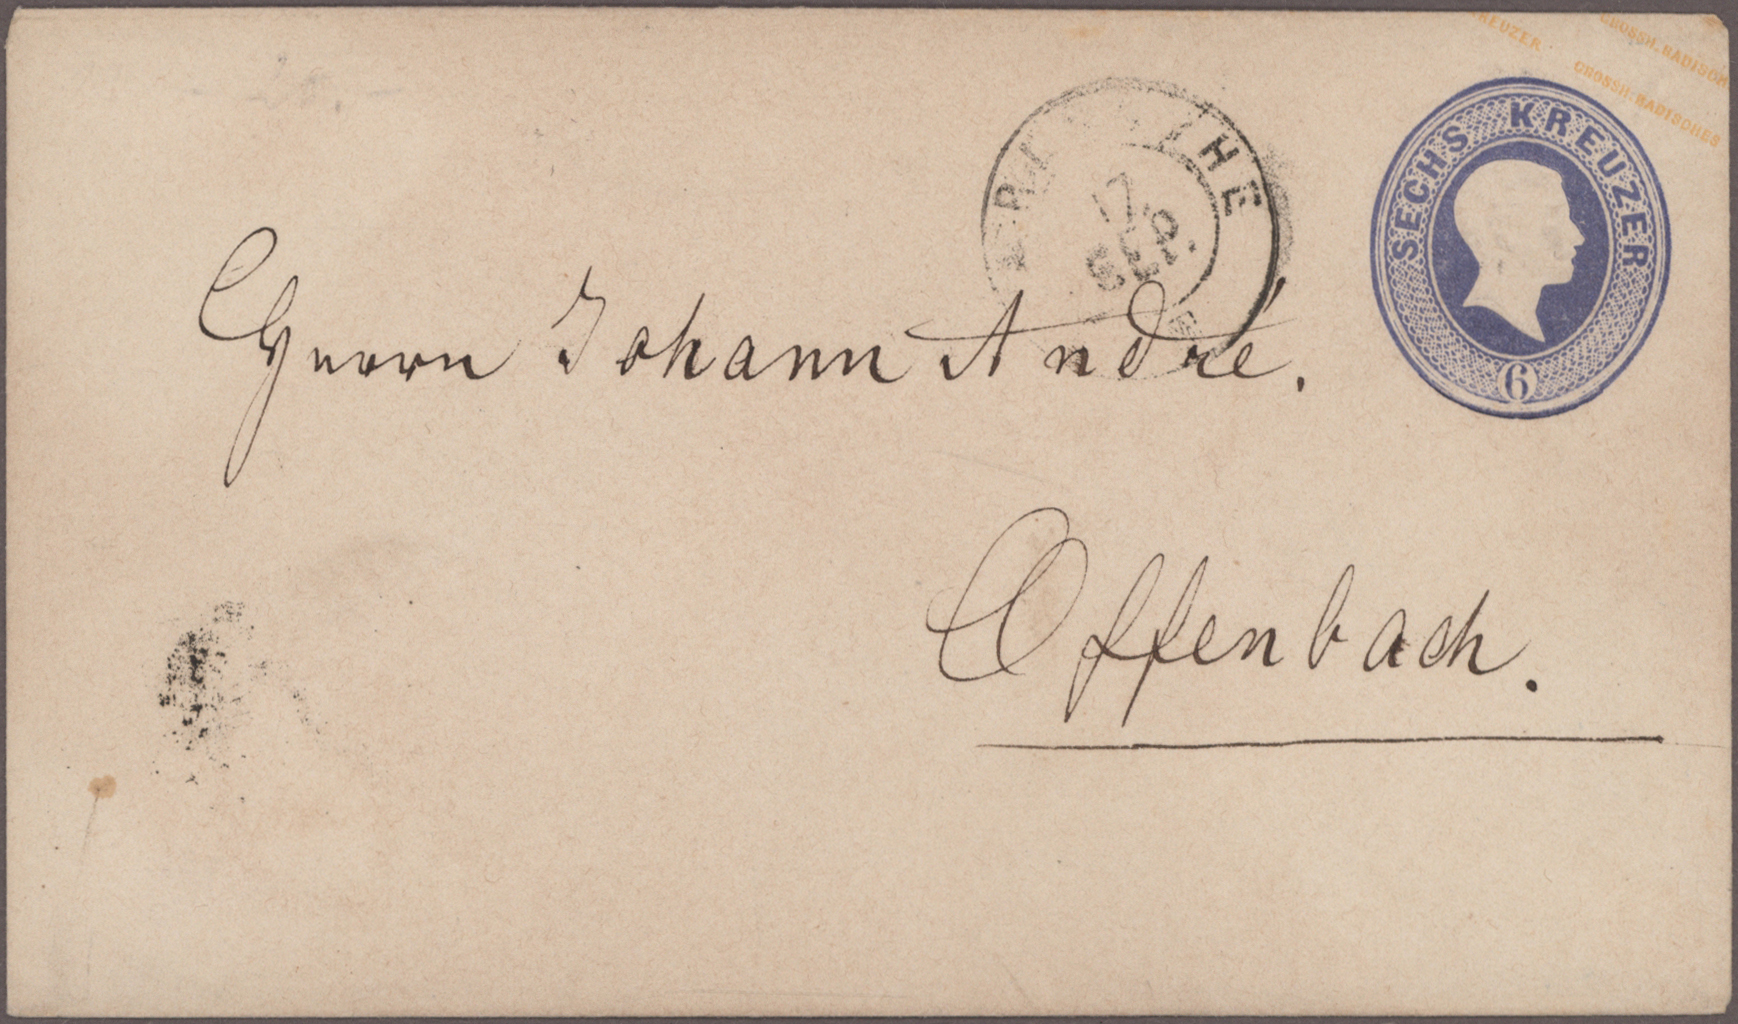 KREUZER
GROSSH. BADISCH
GROSSH. BADISCHES
SECHS KREUZER
6
17.
SEP.
Herrn Johann André.
Offenbach.